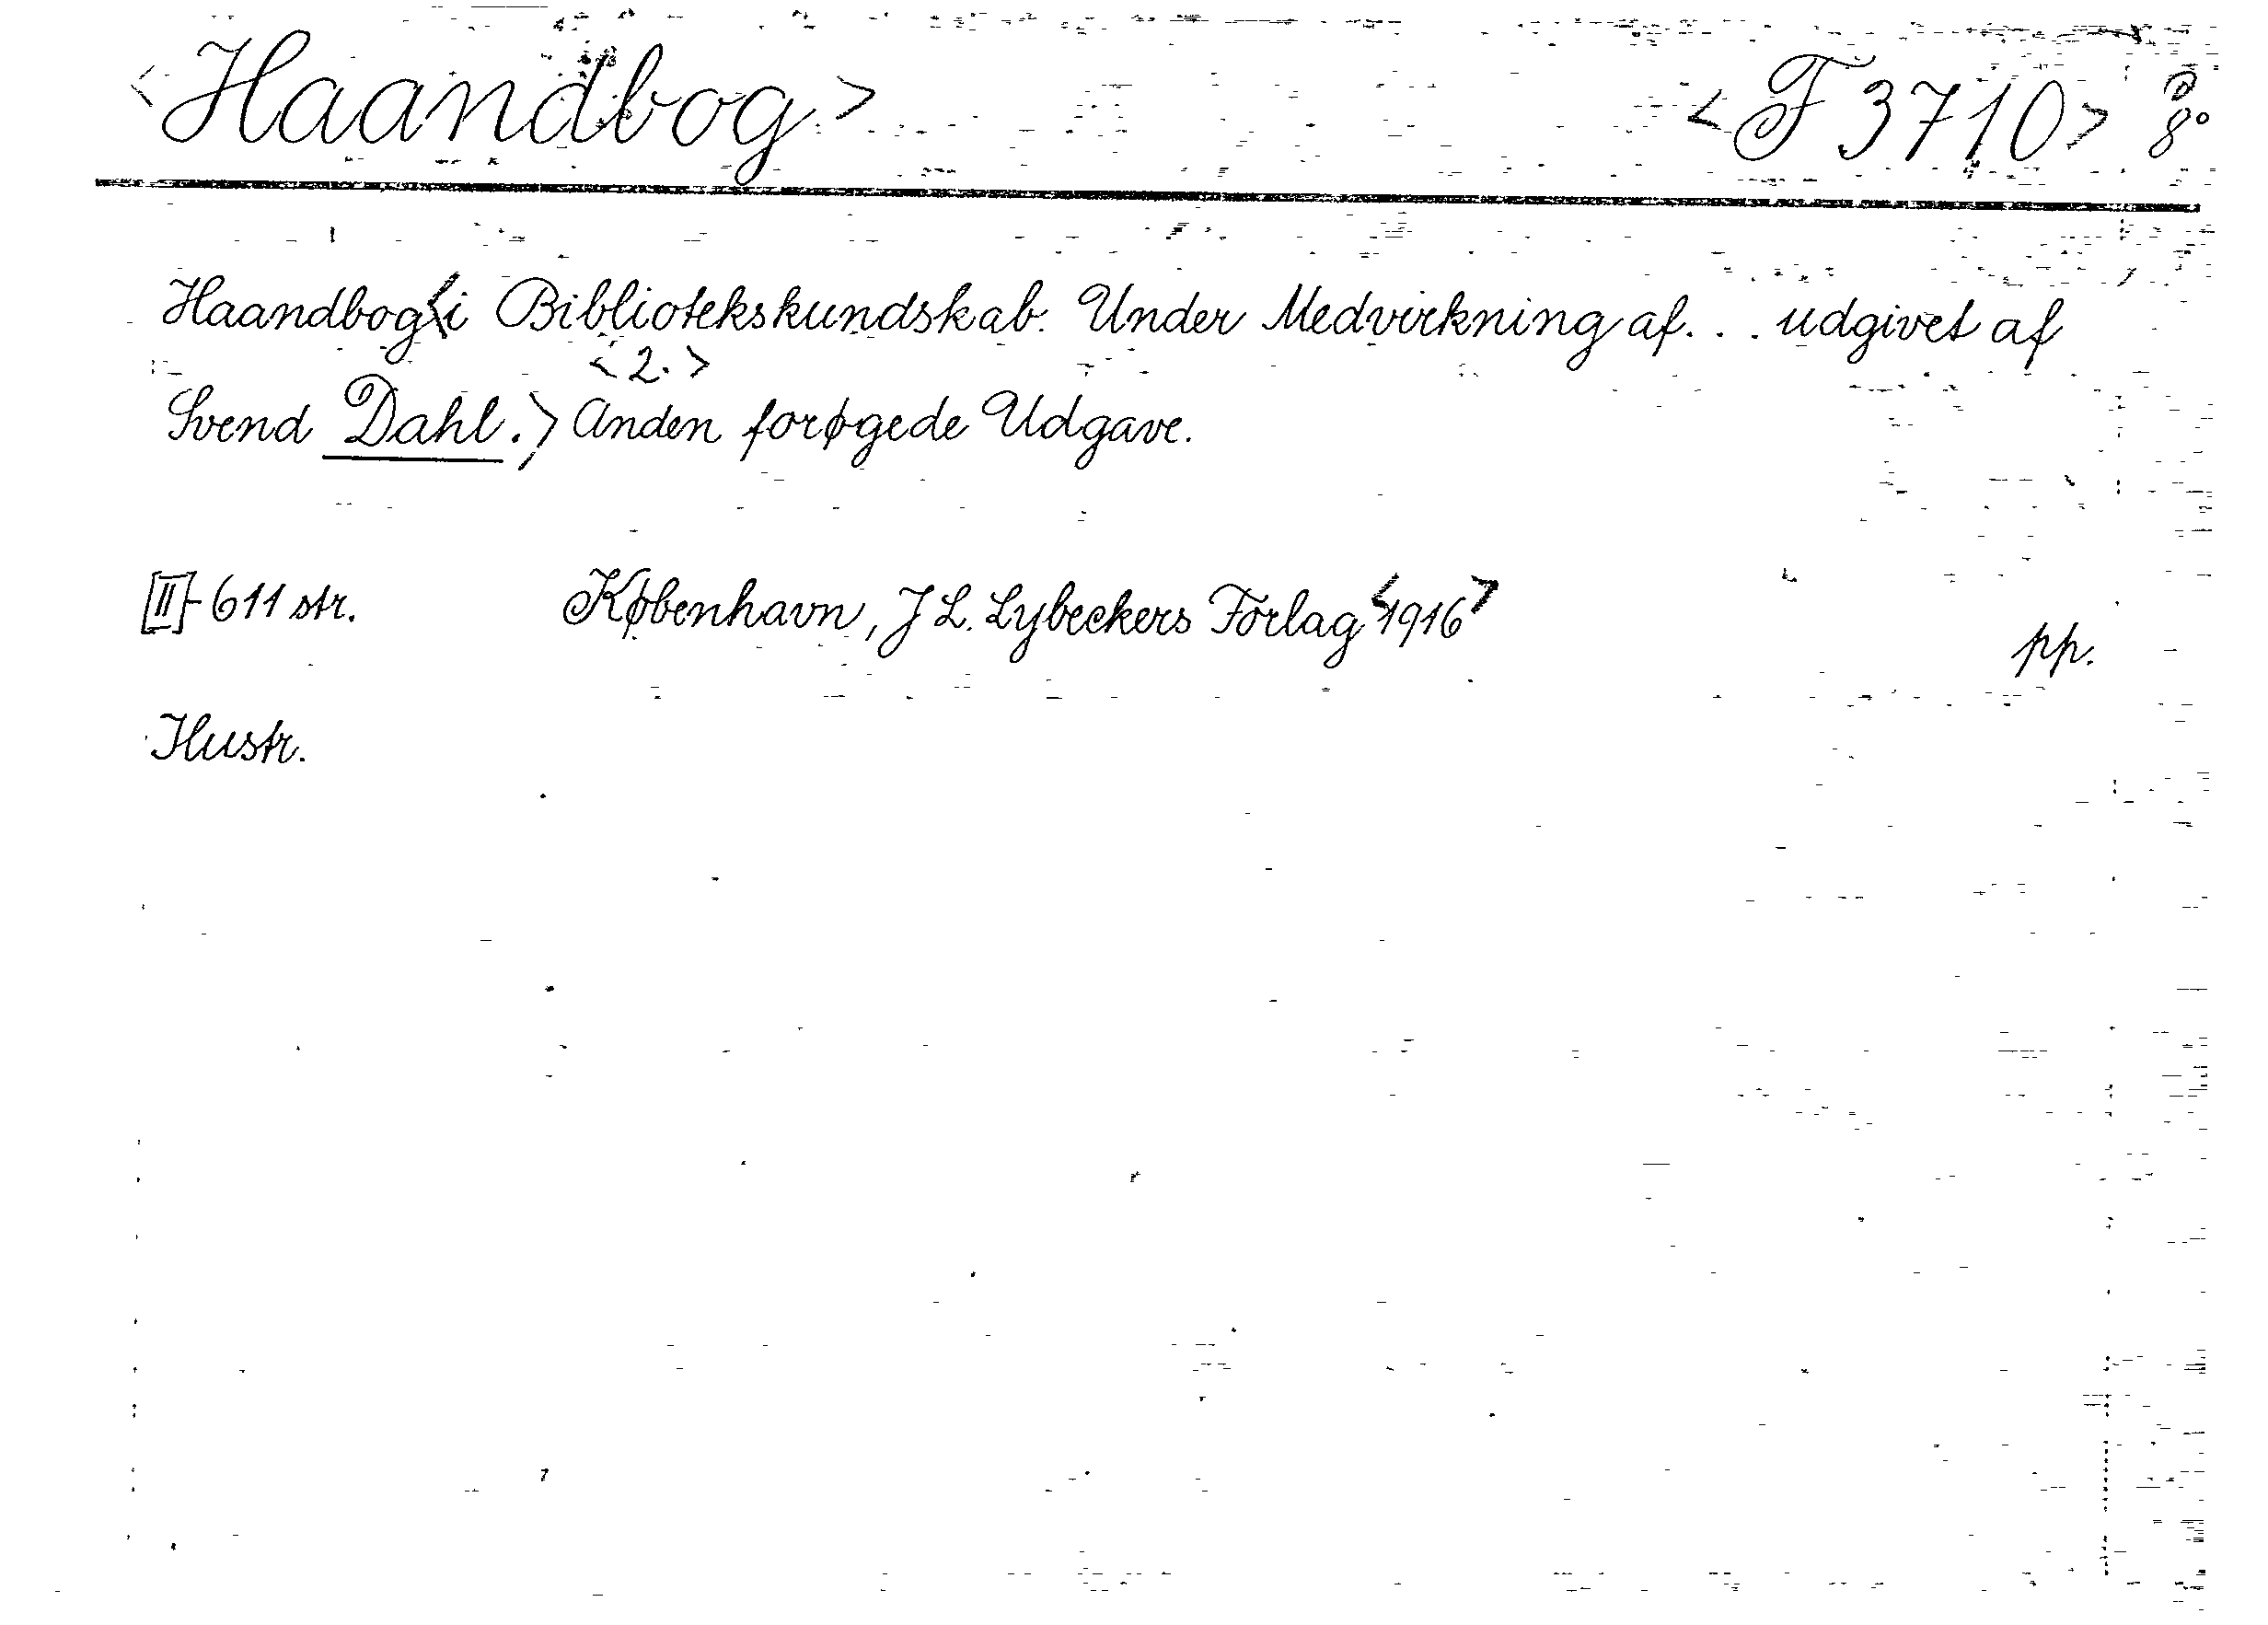 <Haandbog> <F 3710> 8°
Haandbog<i Bibliotekskundskab. Under Medvirkning af... udgivet af
<2.>
Svend Dahl.> Anden forøgede Udgave.
[II]-611 str. København, J L. Lybeckers Forlag <1916>
pp.
Illustr.